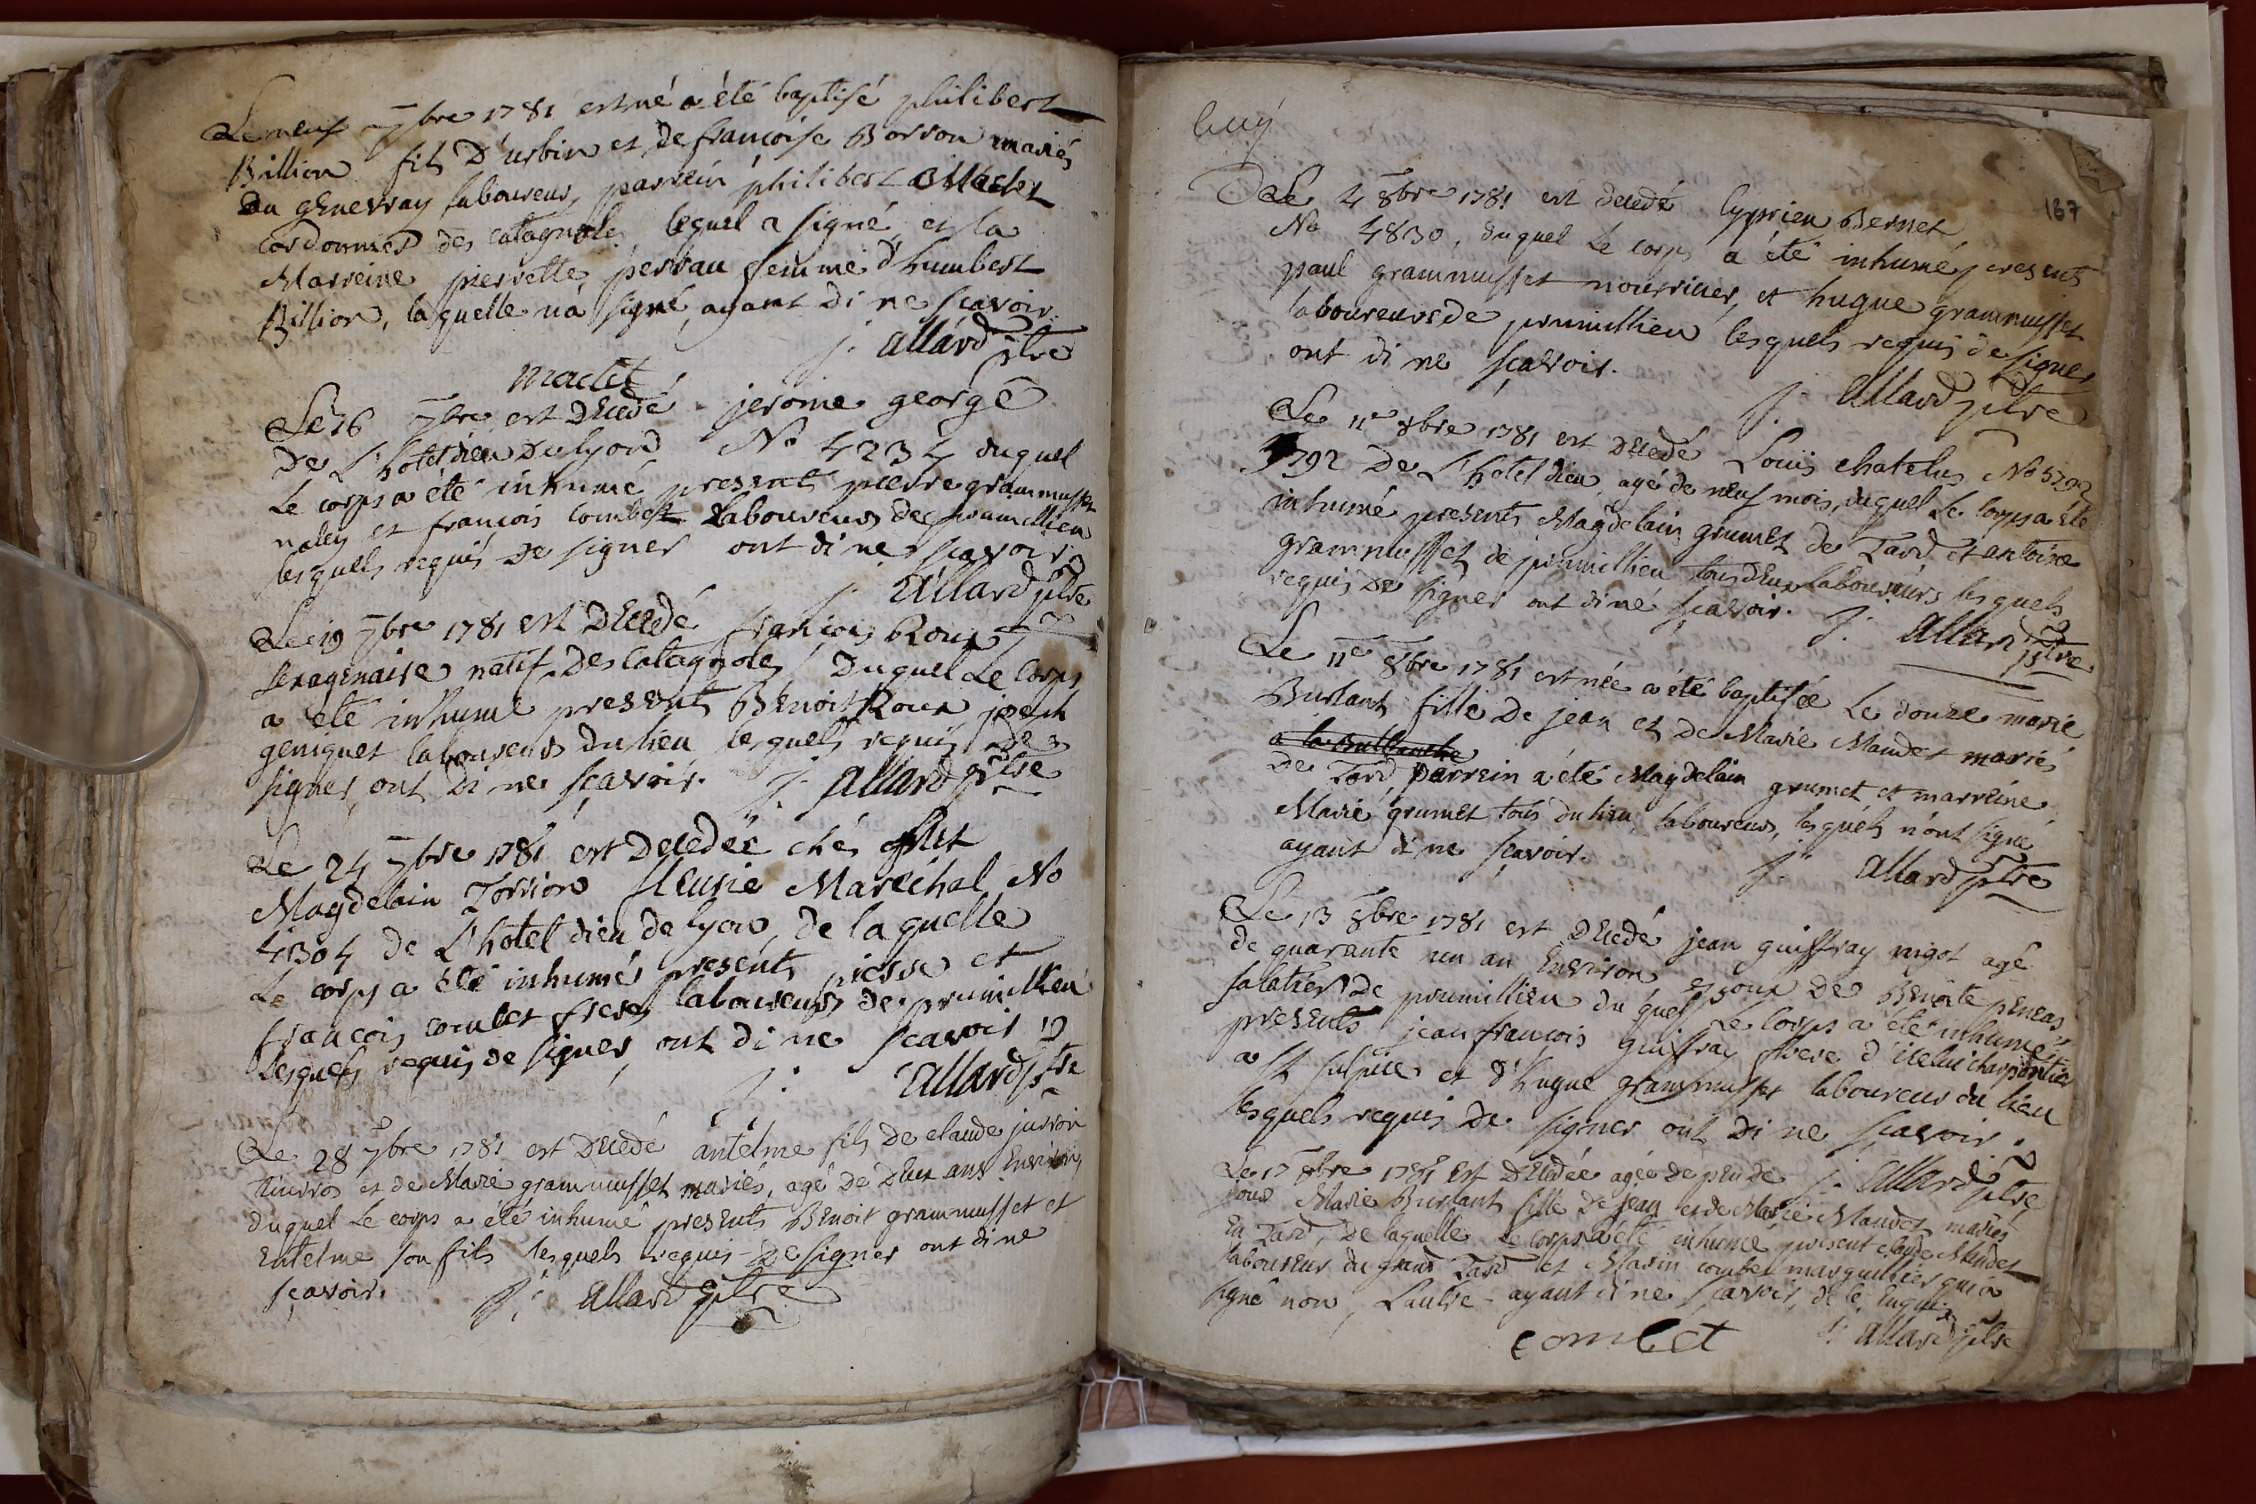 Le neuf 7bre 1781 est né a été baptisé philibert
Billion fils D'urbin et de françoise Borron mariés
du genevray laboureur, parrein philibert Maclet
cordonnier des catagnoles lequel a signé et la
Marreine pierrette perrau femme d'humbert
Billion, laquelle n'a signé, ayant di ne scavoir.
j. allard ptre
maclet
Le 16 7bre est Décédé jerome george
De L'hotel dieu De lyon No 4234 duquel
Le corps a été inhumé presents pierre grammusset
et françois combet Laboureurs de prumillieu
lesquels requis De signer ont di ne scavoir
j. allard ptre
Le 19 7bre 1781 est Décédé françois Roux
sexagenaire natif Des Catagnoles Duquel Le Corps
a été inhumé presents Benoit Roux, joseph
geniquet laboureurs Du lieu lesquels requis De
signer, ont Di ne scavoir. j. allard ptre
Le 24 7bre 1781 est Décédée chés
Magdelain Torrion fleurie Maréchal No
4304 de L'hotel dieu de lyon, de laquelle
Le corps a été inhumé presents pierre et
françois combet freres laboureurs de prumillieu
Lesquels requis de signer, ont di ne scavoir
j. allard ptre
Le 28 7bre 1781 est Décédé antelme fils De claude jurron
et de Marie grammusset mariés, agé De Deux ans Environ,
duquel Le corps a été inhumé presents Benoit grammusset et
Entelme son fils lesquels requis De signer ont di ne
scavoir. j. allard ptre
187
Le 4 8bre 1781 est décédé Cyprien Bernet
No 4830, duquel Le corps a été inhumé, presents
paul grammusset nourricier, et hugue grammusset
laboureurs de prumillieu lesquels requis de signer
ont di ne scavoir.
j. allard ptre
Le 11e 8bre 1781 est Décédé Louis chatelus No 5792
5792 De L'hotel dieu, agé de neuf mois, duquel Le corps a été
inhumé presents Magdelain grumet de Tard et antoine
grammusset de prumillieu tous deux laboureurs lesquels
requis De signer ont di ne scavoir. j. allard ptre
Le 11e 8bre 1781 est née a été baptisée Le douze marie
Burlant fille De jean et De Marie Maudet mariés
De Tard, parrein a été Magdelain grumet et marreine
Marie grumet tous du lieu, laboureurs, lesquels n'ont signé
ayant di ne scavoir. j. allard ptre
Le 13 8bre 1781 est Décédé jean guiffray nigot agé
de quarante un an Environ epoux De Benoite peneas
salatier De prumillieu duquel Le Corps a été inhumé
presents jean françois guiffray frere d'icelui charpantier
a St sulpice et d'hugue grammusset laboureur du lieu
lesquels requis De signer ont di ne scavoir.
j. allard ptre
Le 17 8bre 1781 est Décédée agée de peu de
jour Marie Burlant fille De jean et de Marie Maudet mariés
En Tard, De laquelle Le corps a été inhumé present claude Maudet
laboureur du grand Tard et Marin combet marguillier qui a
signé non, L'autre ayant di ne scavoir, de ce Enquis.
j. allard ptre
combet